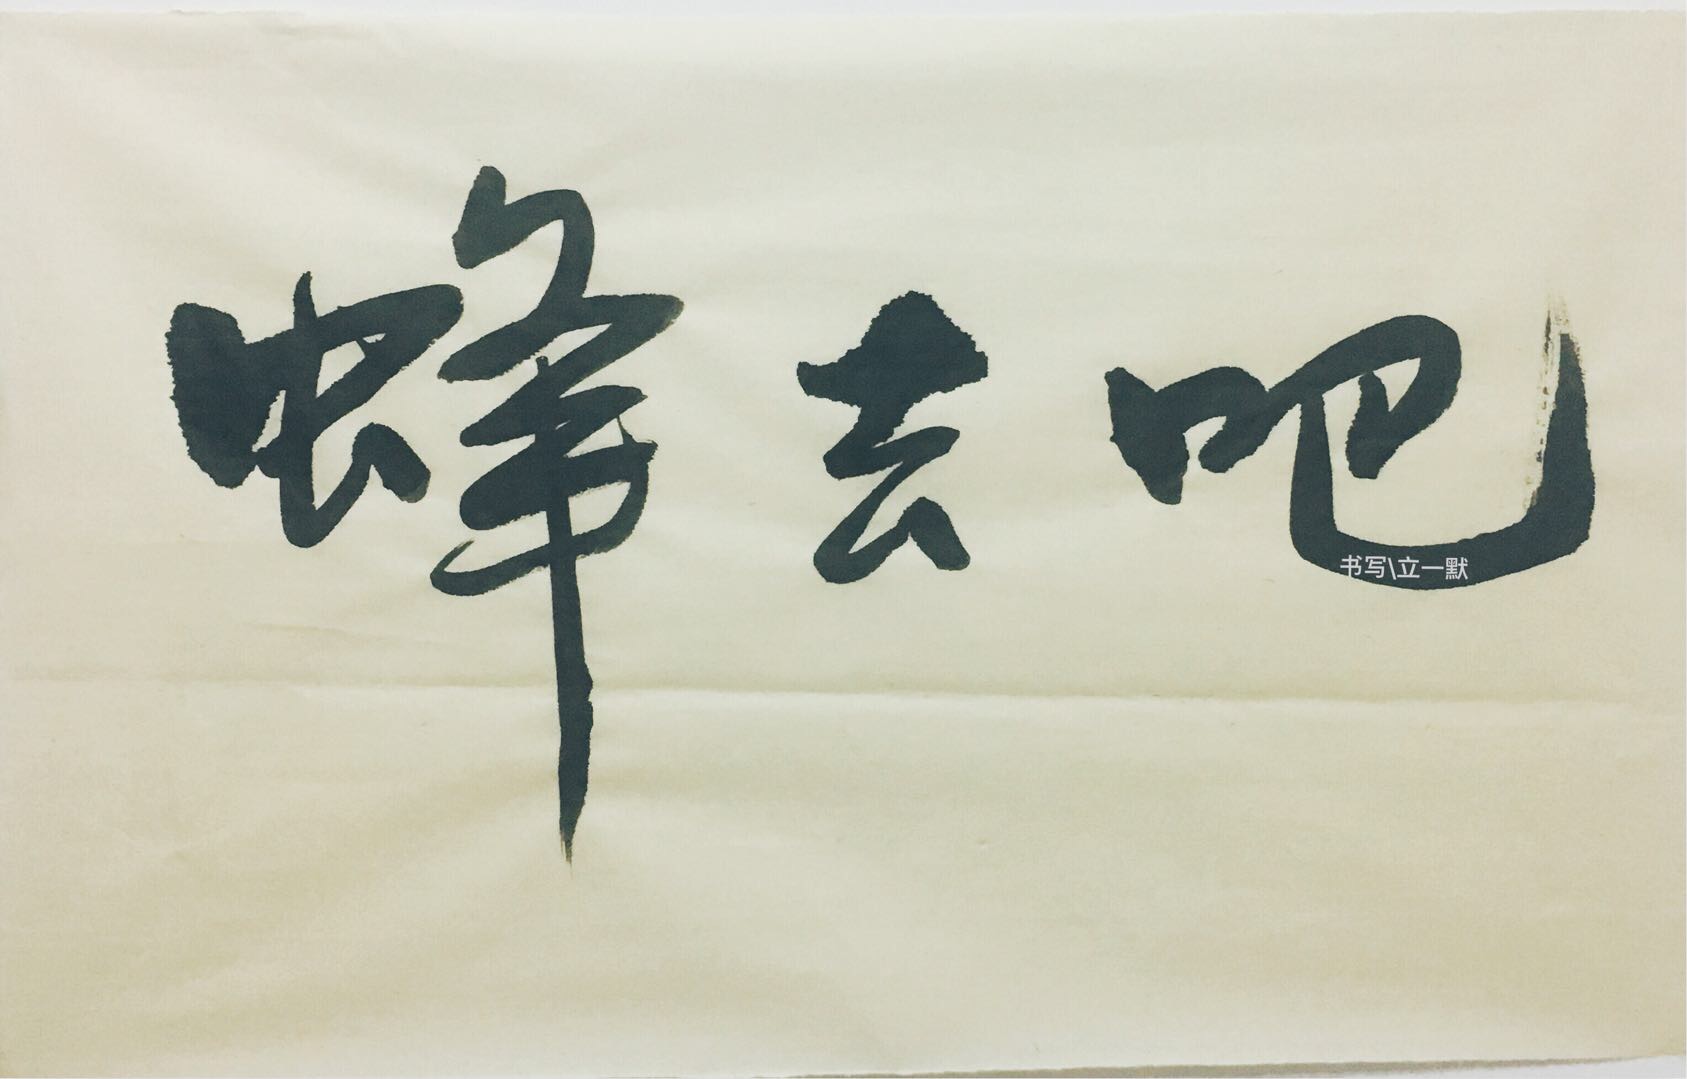 蜂去吧
书写\立一默